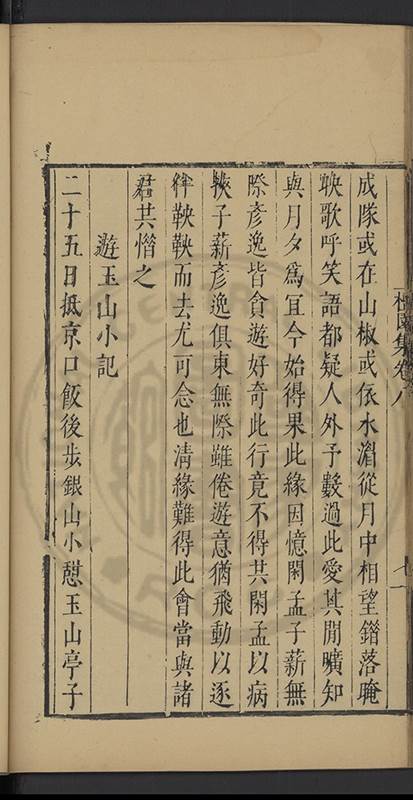 檀園集卷八
成隊或在山椒或依水湄從月中相望錯落晻
映歌呼笑語都疑人外予數過此愛其閒曠知
與月夕為宜今始得果此緣因憶閑孟子薪無
際彥逸皆貪遊好奇此行竟不得共閑孟以病
鞅子薪彥逸俱東無際雖倦遊意猶飛動以逐
伴鞅鞅而去尤可念也清緣難得此會當與諸
君共惜之
遊玉山小記
二十五日抵京口飯後步銀山小憩玉山亭子